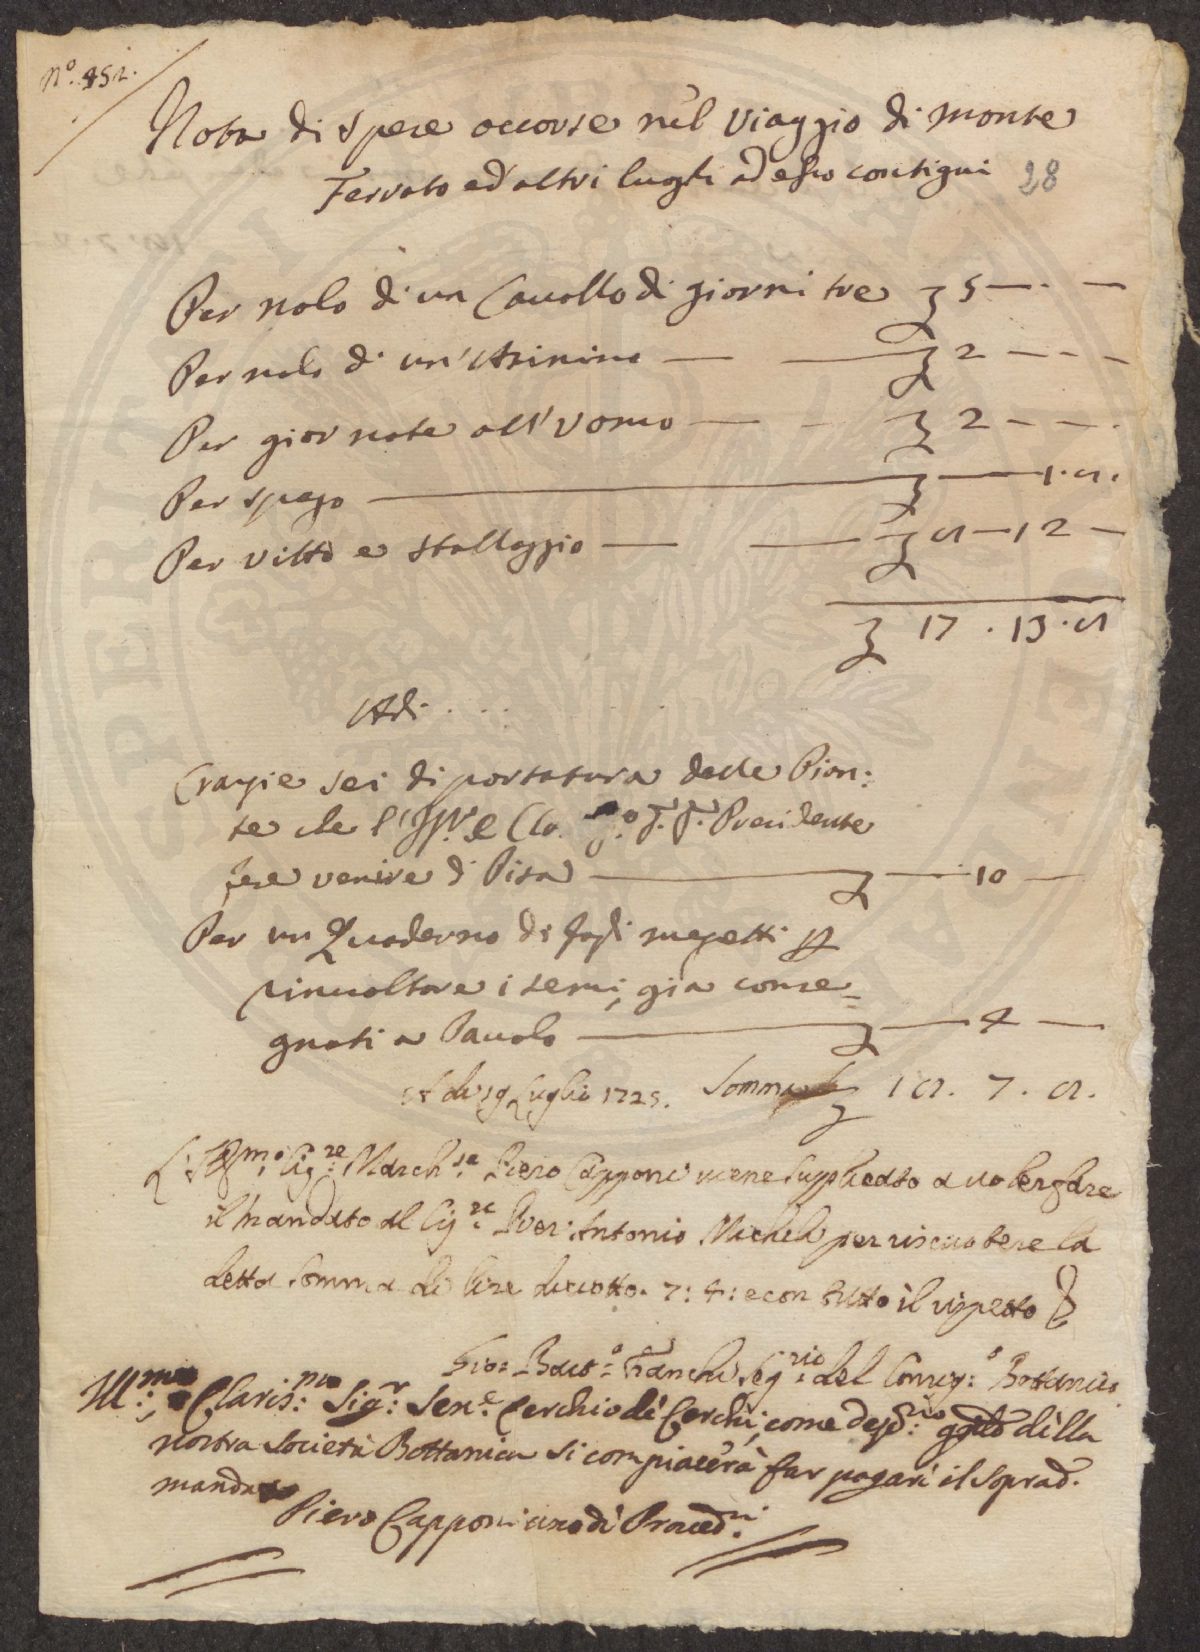 N.º 452.
Nota di spese occorse nel viaggio di Monte
Ferrato ed altri luoghi ad esso contigui 28
Per nolo di un Cavallo di giorni tre 5
Per nolo di un' Asinino 2
Per giornate all'Uomo 2
Per spago 1.
Per vitto e stallaggio 12
17 . 13 .
Adi
Crazie sei di portatura delle Pian:
te che l' Presidente
fece venire di Pisa 10
Per un Quaderno di fogli
rinvoltare i semi, gia conse=
gnati a Pauolo 4
A di 19 Luglio 1725. Somma 7 .
Sig.re March.se Piero Capponi viene supplicato a
il mandato al Sig.re Pier: Antonio Micheli per riscuotere la
detta somma di lire diciotto. 7: 4: e con tutto il rispetto
Gio: Bat.º Fanchi Seg.rio del Botanico
Ill.mo Claris.mo Sig.r Sen.e Cerchio de Cerchi, come dep.rio della
nostra Società Bottanica si compiacerà far pagare il soprad.
mandato
Piero Capponi uno di Proved.ri